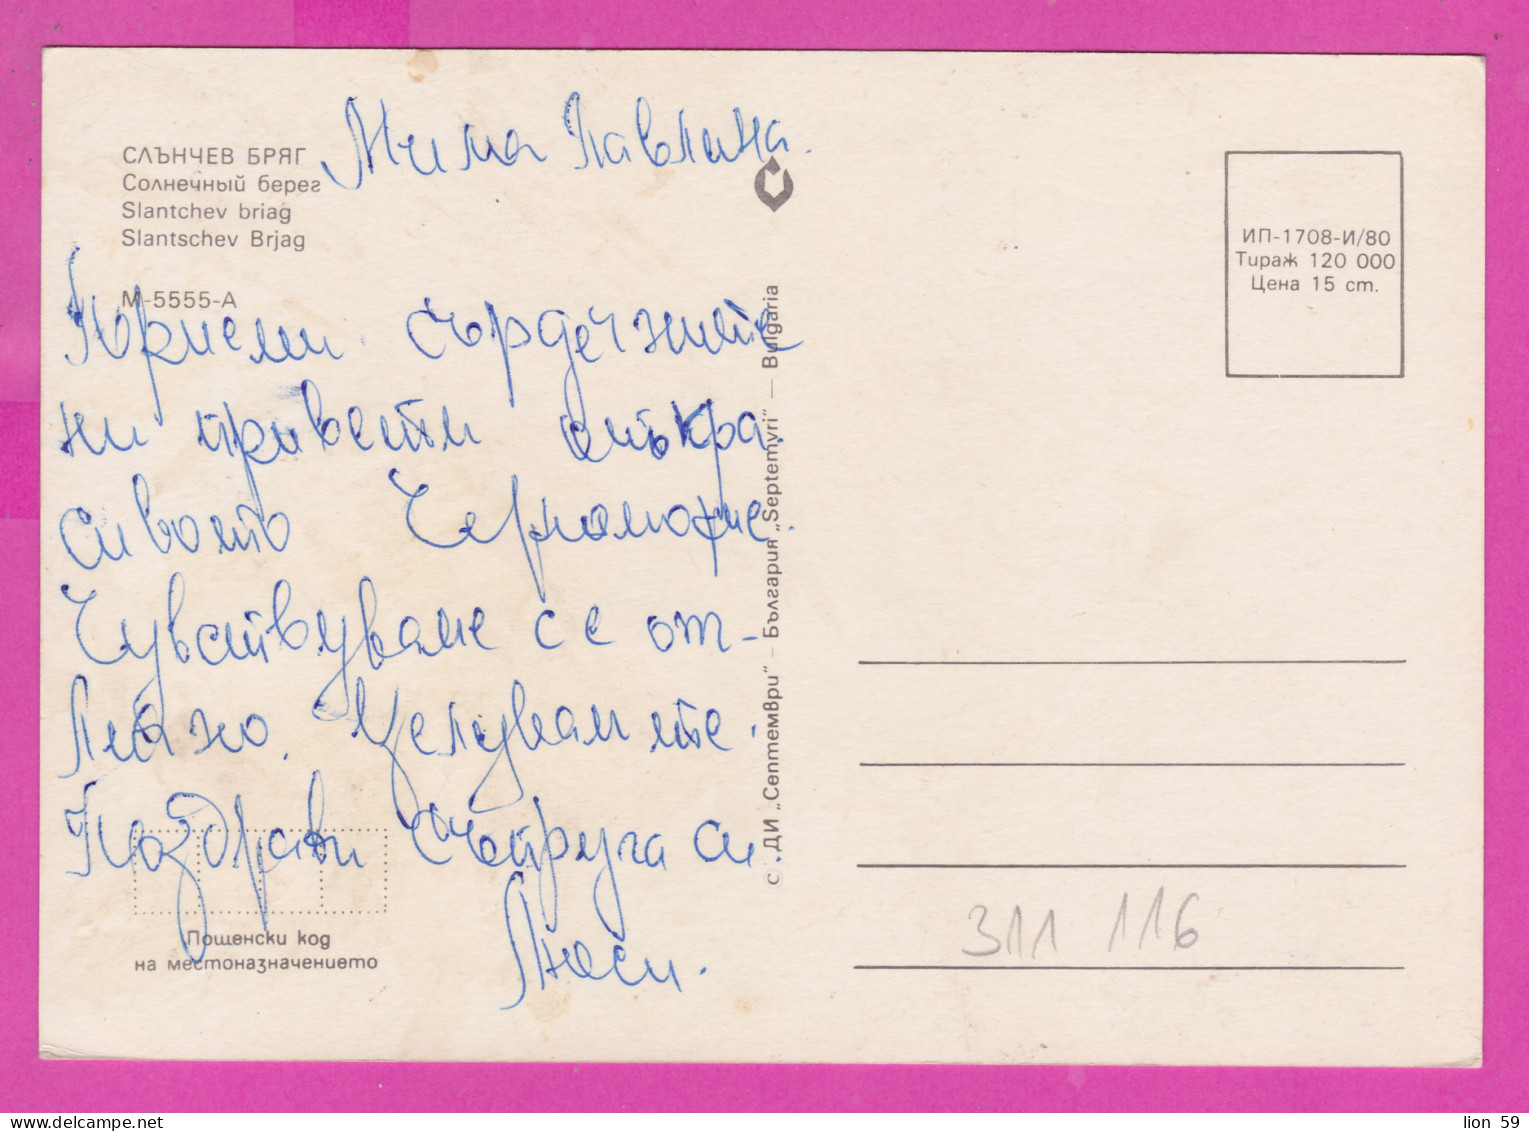 Мила Павлина.
СЛЪНЧЕВ БРЯГ
Солнечный берег
Slantchev briag
Slantschev Brjag
М-5555-А
Приеми сърдечните
ни привети от кра
сивото Черноморие.
Чувстваме се от-
лично. Целувам те.
Поздрави съпруга си.
Люси.
Пощенски код
на местоназначението
С ДИ „Септември“ — България „Septemvri“ — Bulgaria
ИП-1708-И/80
Тираж 120 000
Цена 15 ст.
311 116
lion 59